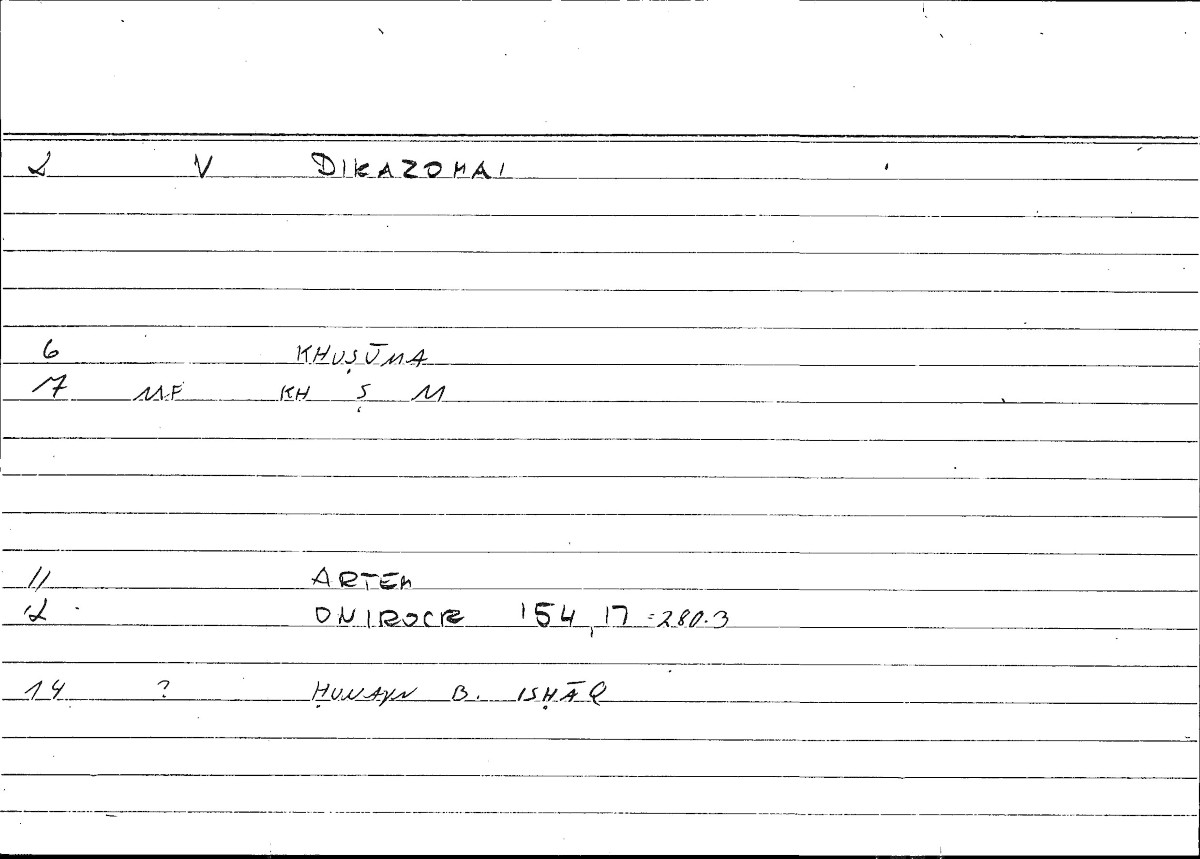 2 V DIKAZOMAI
6 KHUṢŪMA
7 MF KH Ṣ M
11 ARTEM
12 ONIROCR 154,17 =280.3
14 ? ḤUNAYN B. ISḤĀQ